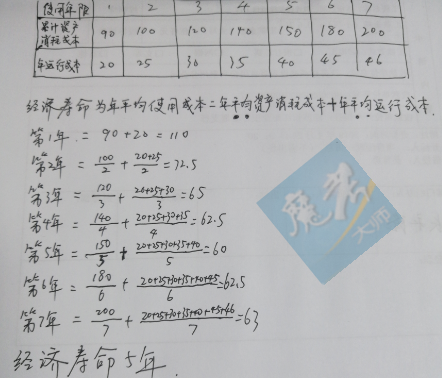 使用年限 1 2 3 4 5 6 7
累计资产消耗成本 90 100 120 140 150 180 200
年运行成本 20 25 30 35 40 45 46
经济寿命为年平均使用成本=年平均资产消耗成本+年平均运行成本
第1年 = 90+20=110
第2年 = 100/2 + 20+25/2 = 72.5
第3年 = 120/3 + 20+25+30/3 = 65
第4年 = 140/4 + 20+25+30+35/4 = 62.5
第5年 = 150/5 + 20+25+30+35+40/5 = 60
第6年 = 180/6 + 20+25+30+35+40+45/6 = 62.5
第7年 = 200/7 + 20+25+30+35+40+45+46/7 = 63
经济寿命5年.
魔考大师